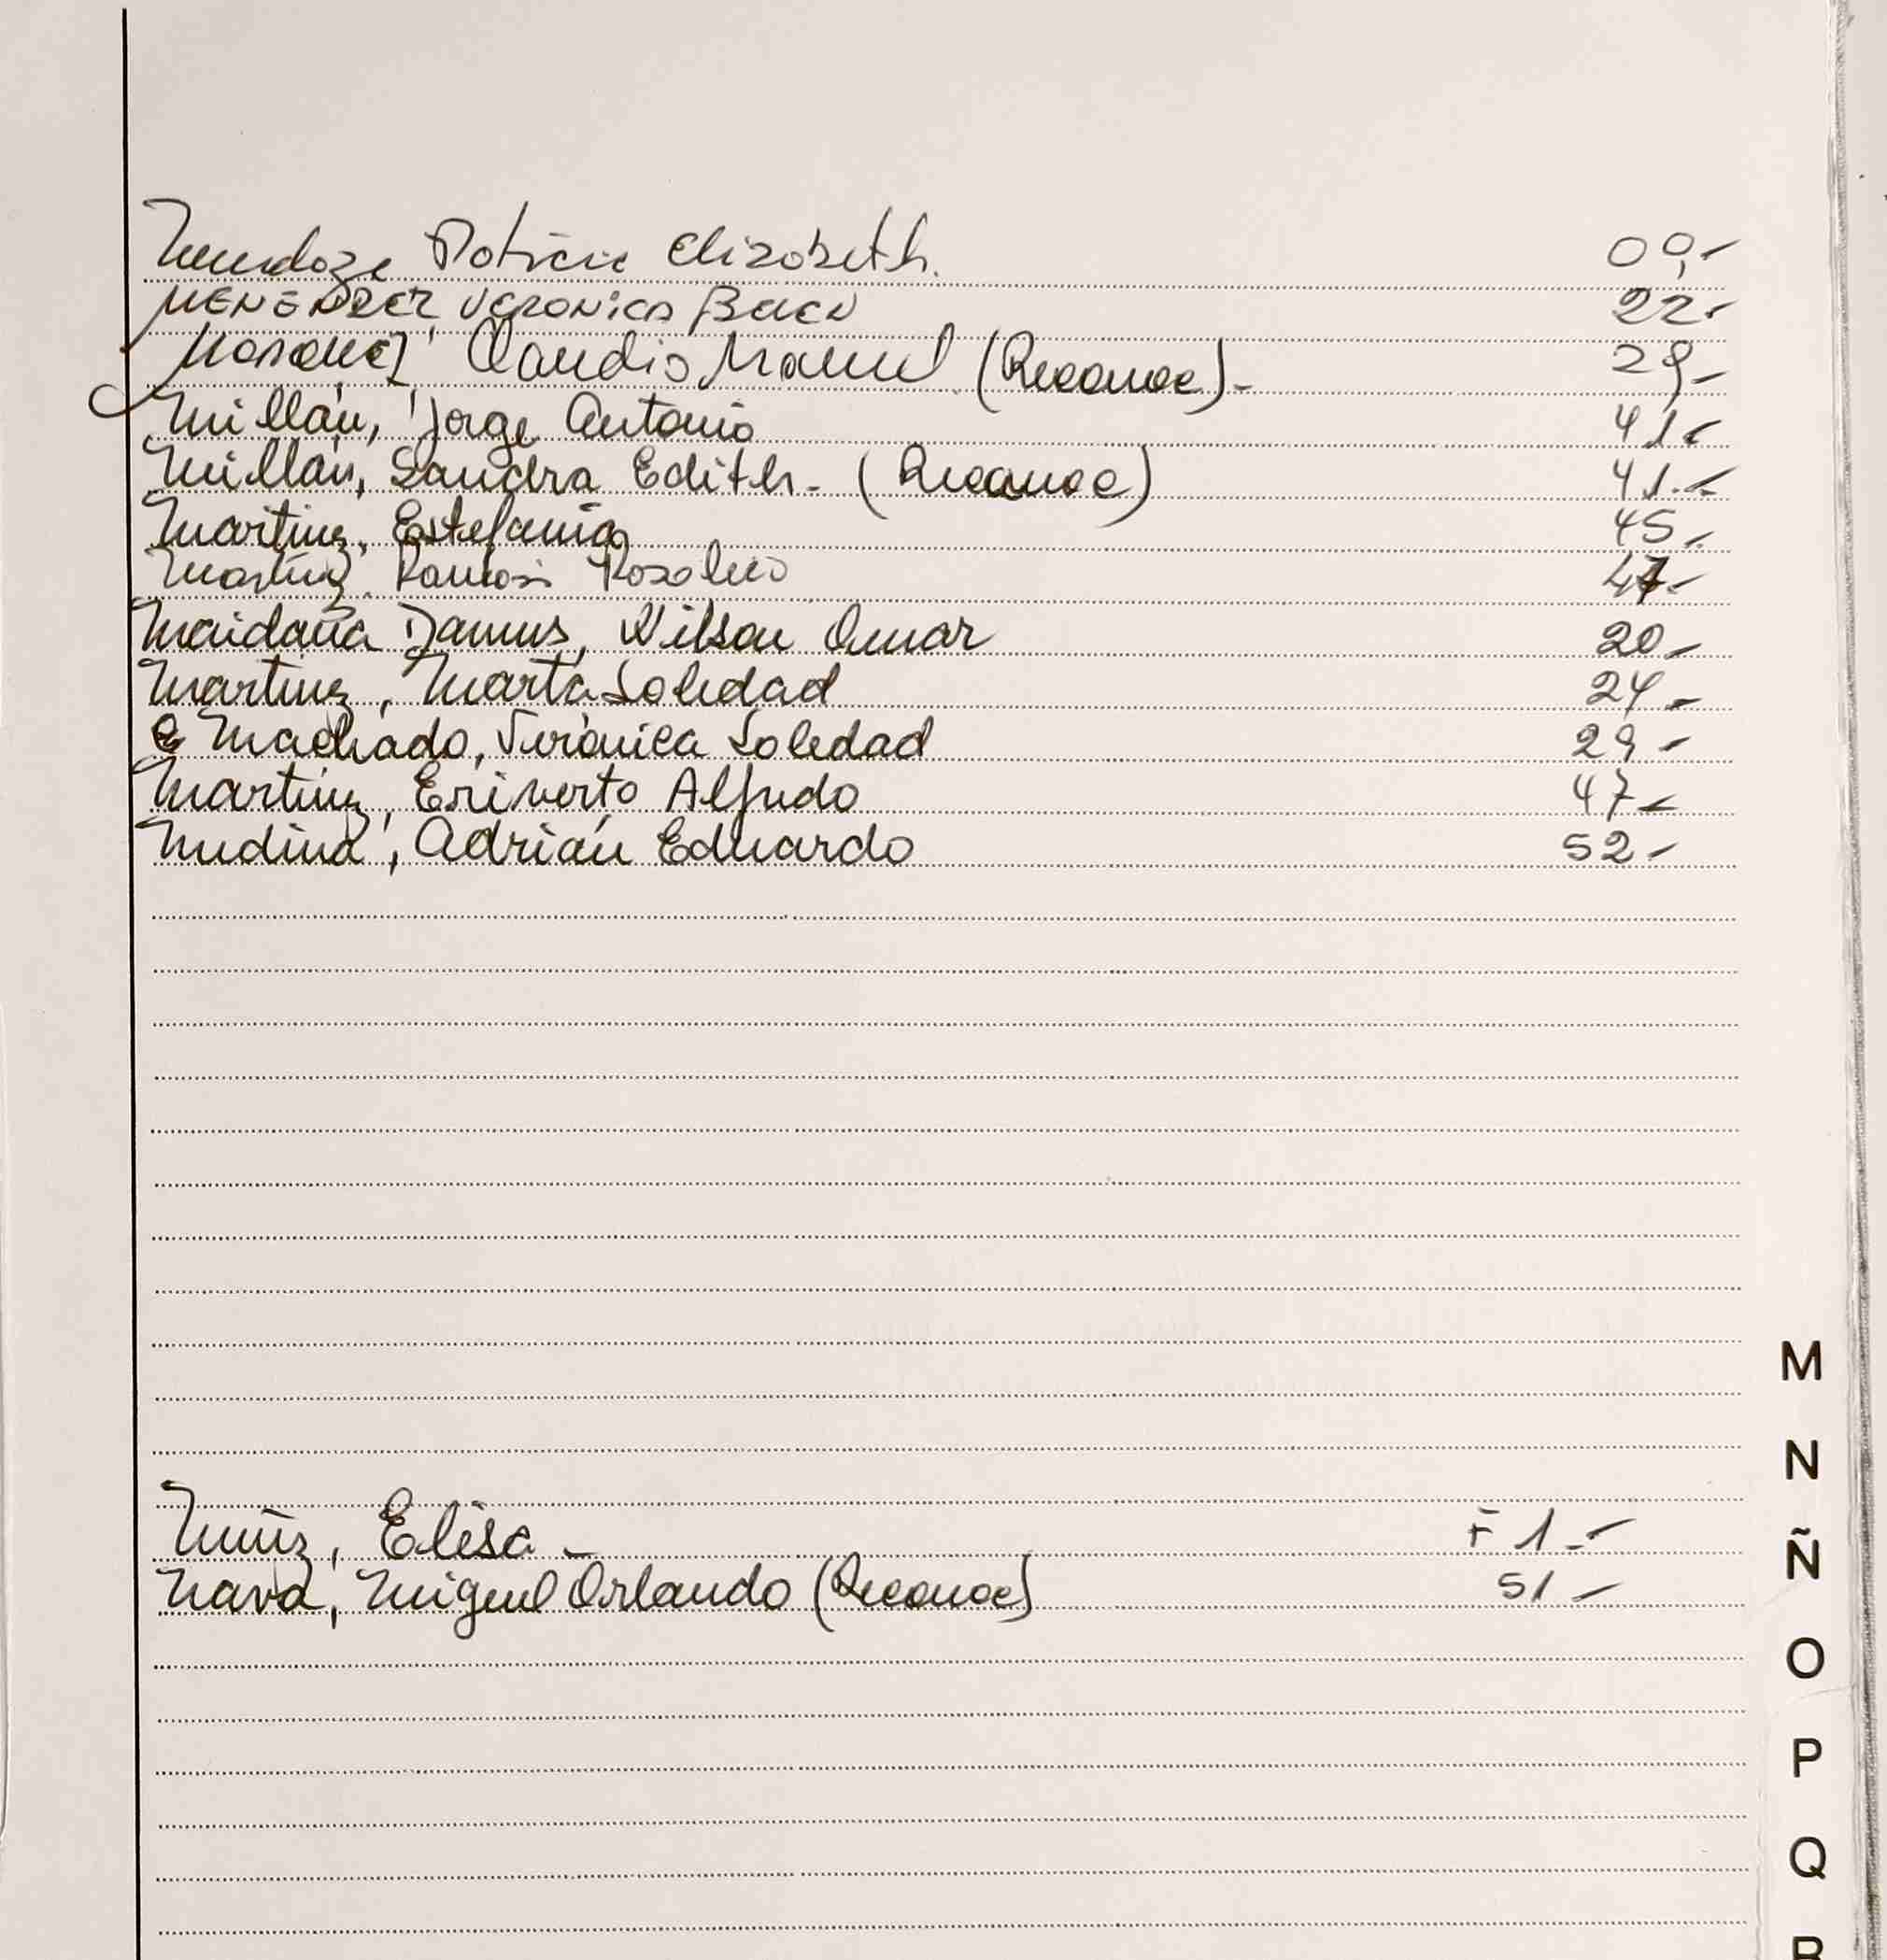 Mendoza Patricia Elizabeth. 09,-
MENENDEZ, VERONICA BELEN 22-
Marquez, Claudio Manuel (Reconoc).- 29,-
Millán, Jorge Antonio 41-
Millán, Sandra Edith.- (Reconoc) 41.-
Martinez, Estefanía 45,-
Martinez, Ramos 47-
Maidana Damus, Wilson Omar 20,-
Martinez, Marta Soledad 24,-
Machado, Verónica Soledad 29-
Martinez, Eriverto Alfredo 47-
Medina, Adrián Eduardo 52-
M
N
Muñiz, Elisa - F 1.-
Ñ
Nava, Miguel Orlando (Reconoc) 51-
O
P
Q
R